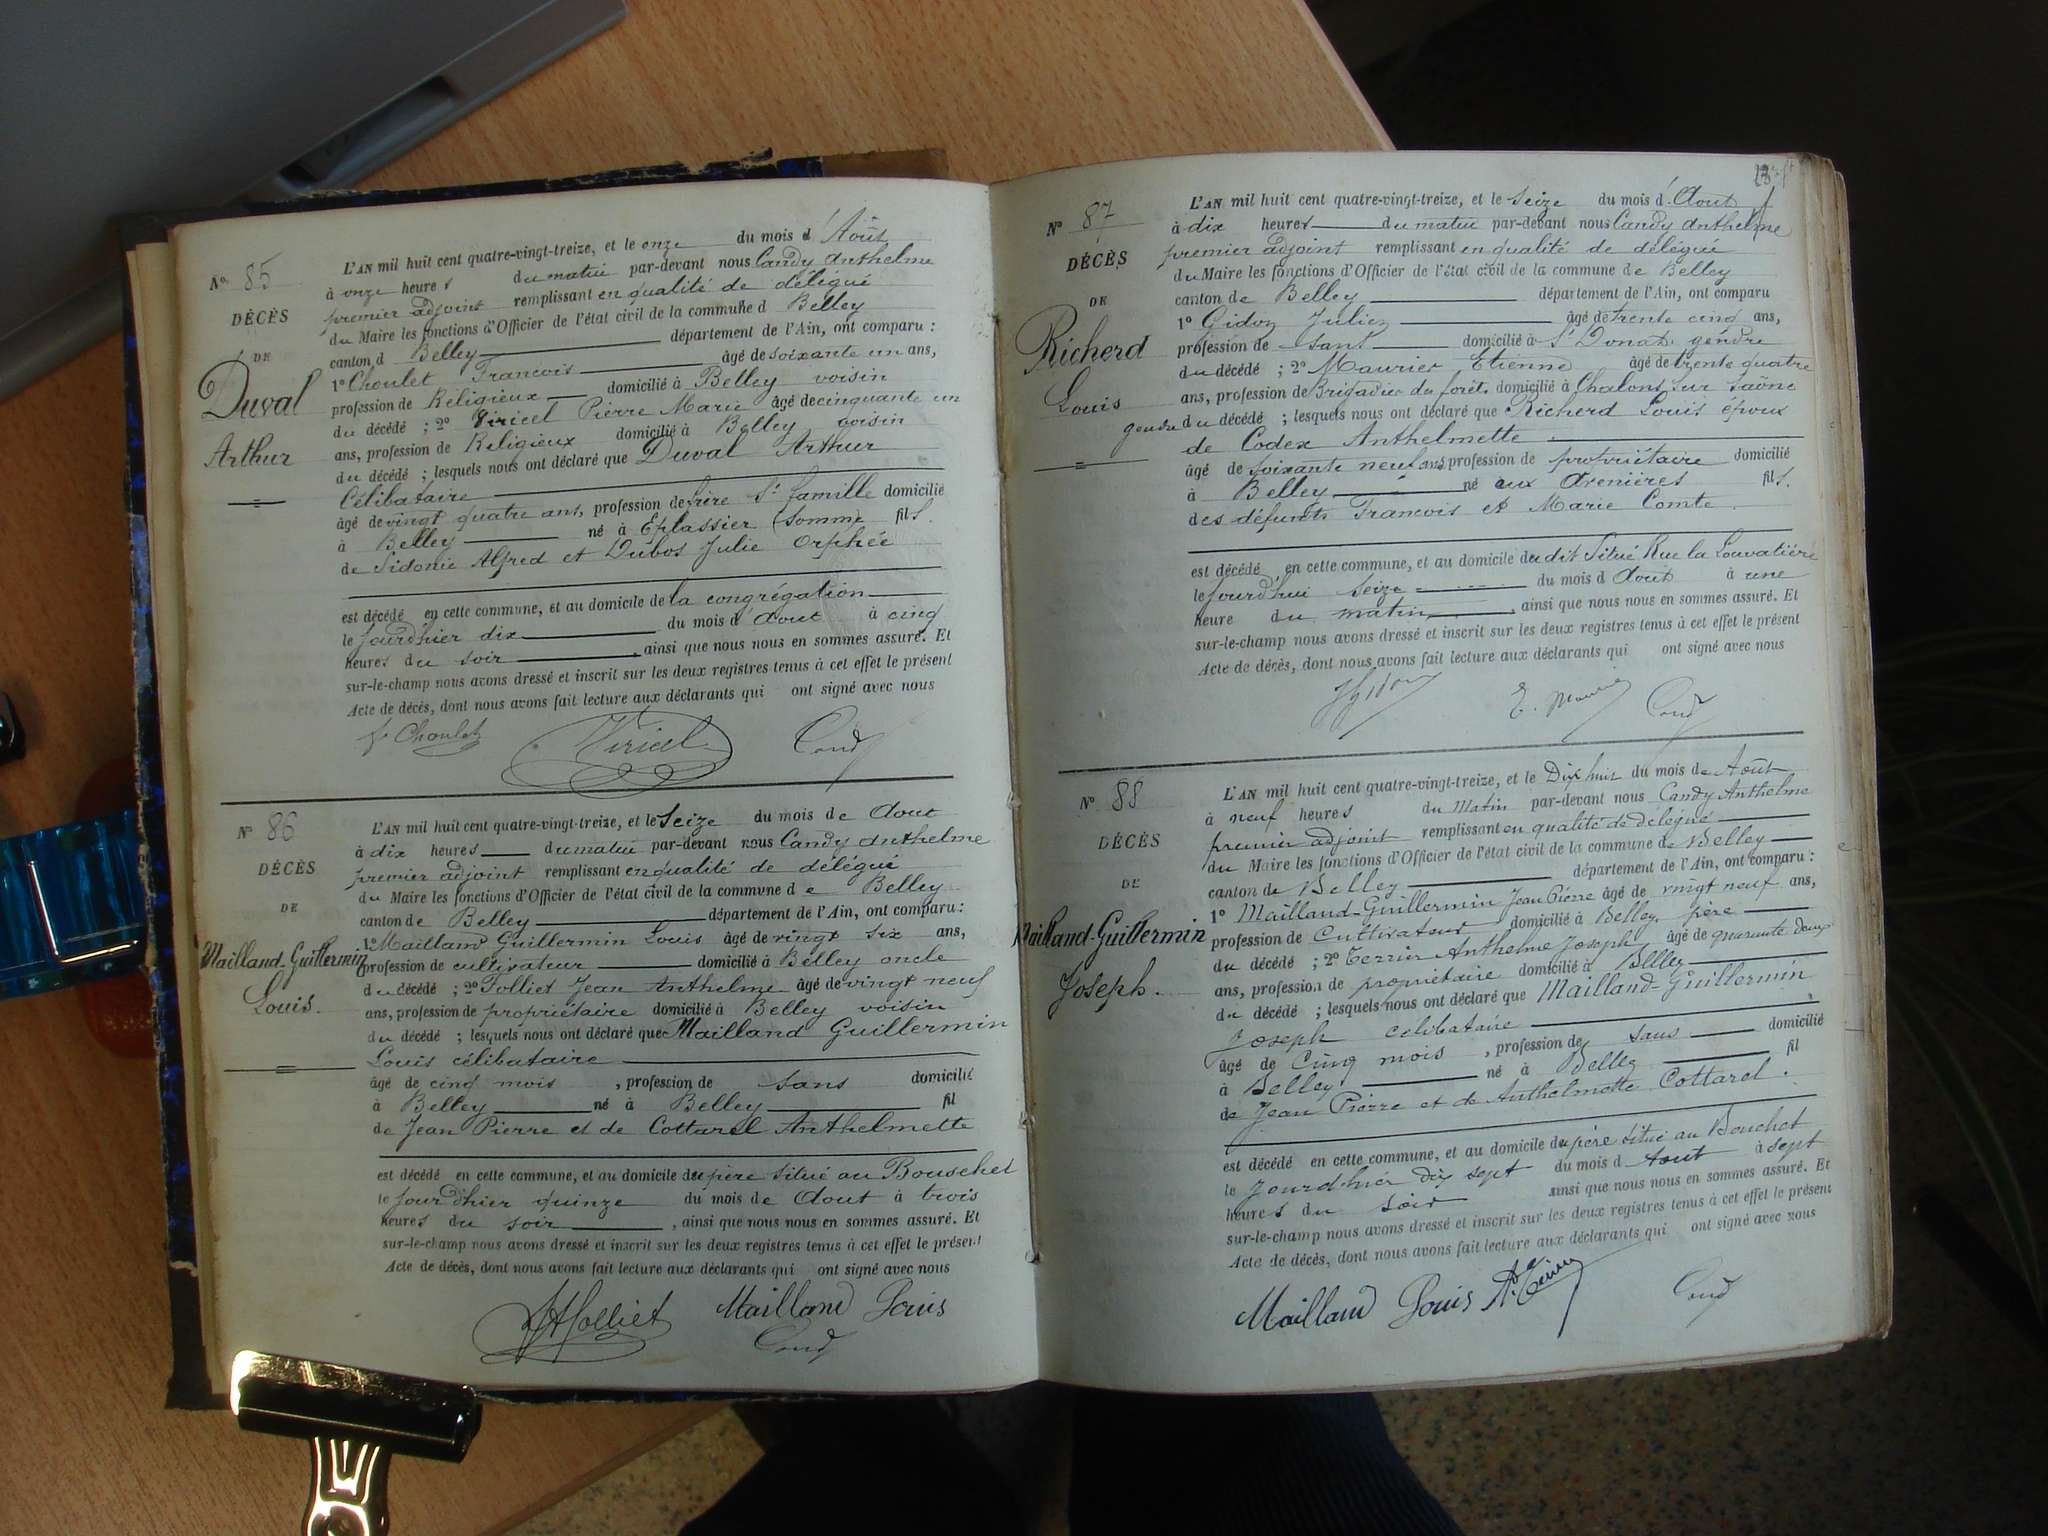 N° 85
DÉCÈS
DE
Duval
Arthur
L'AN mil huit cent quatre-vingt-treize, et le onze du mois d'Août
à onze heures du matin par-devant nous Candy Anthelme
premier adjoint remplissant en qualité de délégué
du Maire les fonctions d'Officier de l'état civil de la commune d Belley
canton d Belley département de l'Ain, ont comparu :
1° Choulet Francois âgé de soixante un ans,
profession de Religieux domicilié à Belley voisin
du décédé ; 2° Viricel Pierre Marie âgé de cinquante un
ans, profession de Religieux domicilié à Belley voisin
du décédé ; lesquels nous ont déclaré que Duval Arthur
Célibataire
âgé de vingt quatre ans, profession de frère Ste famille domicilié
à Belley né à Eplassier (Somme) fils
de Sidonie Alfred et Dubos Julie Orphée
est décédé en cette commune, et au domicile de la congrégation
le jourd'hier dix du mois d'Aout à cinq
heures du soir , ainsi que nous nous en sommes assuré. Et
sur-le-champ nous avons dressé et inscrit sur les deux registres tenus à cet effet le présent
Acte de décès, dont nous avons fait lecture aux déclarants qui ont signé avec nous
F Choulet Viricel Candy
N° 86
DÉCÈS
DE
Mailland-Guillermin
Louis.
L'AN mil huit cent quatre-vingt-treize, et le seize du mois de Aout
à dix heures du matin par-devant nous Candy Anthelme
premier adjoint remplissant en qualité de délégué
du Maire les fonctions d'Officier de l'état civil de la commune d e Belley
canton de Belley département de l'Ain, ont comparu :
1° Mailland Guillermin Louis âgé de vingt six ans,
profession de cultivateur domicilié à Belley oncle
du décédé ; 2° Folliet Jean Anthelme âgé de vingt neuf
ans, profession de propriétaire domicilié à Belley voisin
du décédé ; lesquels nous ont déclaré que Mailland Guillermin
Louis célibataire
âgé de cinq mois , profession de sans domicilié
à Belley né à Belley fil
de Jean Pierre et de Cottarel Anthelmette
est décédé en cette commune, et au domicile du père situé au Bouschet
le jourd'hier quinze du mois de Aout à trois
heures du soir , ainsi que nous nous en sommes assuré. Et
sur-le-champ nous avons dressé et inscrit sur les deux registres tenus à cet effet le présent
Acte de décès, dont nous avons fait lecture aux déclarants qui ont signé avec nous
JAFolliet Mailland Louis
Candy
N° 87
DÉCÈS
DE
Richerd
Louis
L'AN mil huit cent quatre-vingt-treize, et le seize du mois d'Aout
à dix heures du matin par-devant nous Candy Anthelme
premier adjoint remplissant en qualité de délégué
du Maire les fonctions d'Officier de l'état civil de la commune de Belley
canton de Belley département de l'Ain, ont comparu
1° Gidon Julien âgé de trente cinq ans,
profession de sans domicilié à St Donat gendre
du décédé ; 2° Maurier Etienne âgé de trente quatre
ans, profession de Brigadier du forêt domicilié à Chalons sur Saône
gendre du décédé ; lesquels nous ont déclaré que Richerd Louis époux
de Codex Anthelmette
âgé de soixante neuf ans, profession de propriétaire domicilié
à Belley né aux Avenières fils.
des défunts Francois et Marie Comte
est décédé en cette commune, et au domicile du dit Situé Rue la Louvatière
le jourd'hui seize du mois d Aout à une
heure du matin , ainsi que nous nous en sommes assuré. Et
sur-le-champ nous avons dressé et inscrit sur les deux registres tenus à cet effet le présent
Acte de décès, dont nous avons fait lecture aux déclarants qui ont signé avec nous
JGidon E. Maurier Candy
N° 88
DÉCÈS
DE
Mailland-Guillermin
Joseph.
L'AN mil huit cent quatre-vingt-treize, et le Dix huit du mois de Août
à neuf heures du Matin par-devant nous Candy Anthelme
premier adjoint remplissant en qualité de délégué
du Maire les fonctions d'Officier de l'état civil de la commune de Belley
canton de Belley département de l'Ain, ont comparu :
1° Mailland-Guillermin Jean Pierre âgé de vingt neuf ans,
profession de Cultivateur domicilié à Belley, père
du décédé ; 2° Terrier Anthelme Joseph âgé de quarante deux
ans, profession de propriétaire domicilié à Belley
du décédé ; lesquels nous ont déclaré que Mailland-Guillermin
Joseph célibataire
âgé de Cinq mois , profession de sans domicilié
à Belley né à Belley fil
de Jean Pierre et de Anthelmette Cottarel.
est décédé en cette commune, et au domicile du père situé au Bouchet
le jourdhier dix sept du mois d Aout à sept
heures du soir ainsi que nous nous en sommes assuré. Et
sur-le-champ nous avons dressé et inscrit sur les deux registres tenus à cet effet le présent
Acte de décès, dont nous avons fait lecture aux déclarants qui ont signé avec nous
Mailland Louis Candy